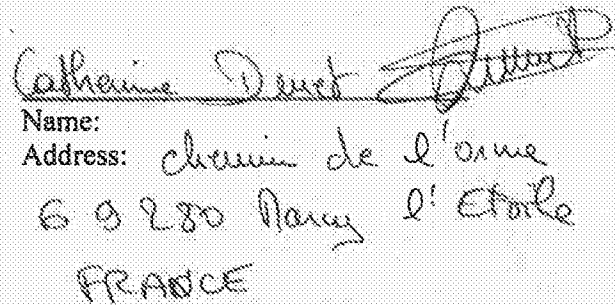 Catherine Denet
Name:
Address: chemin de l'orme
69280 Marcy l'Etoile
FRANCE